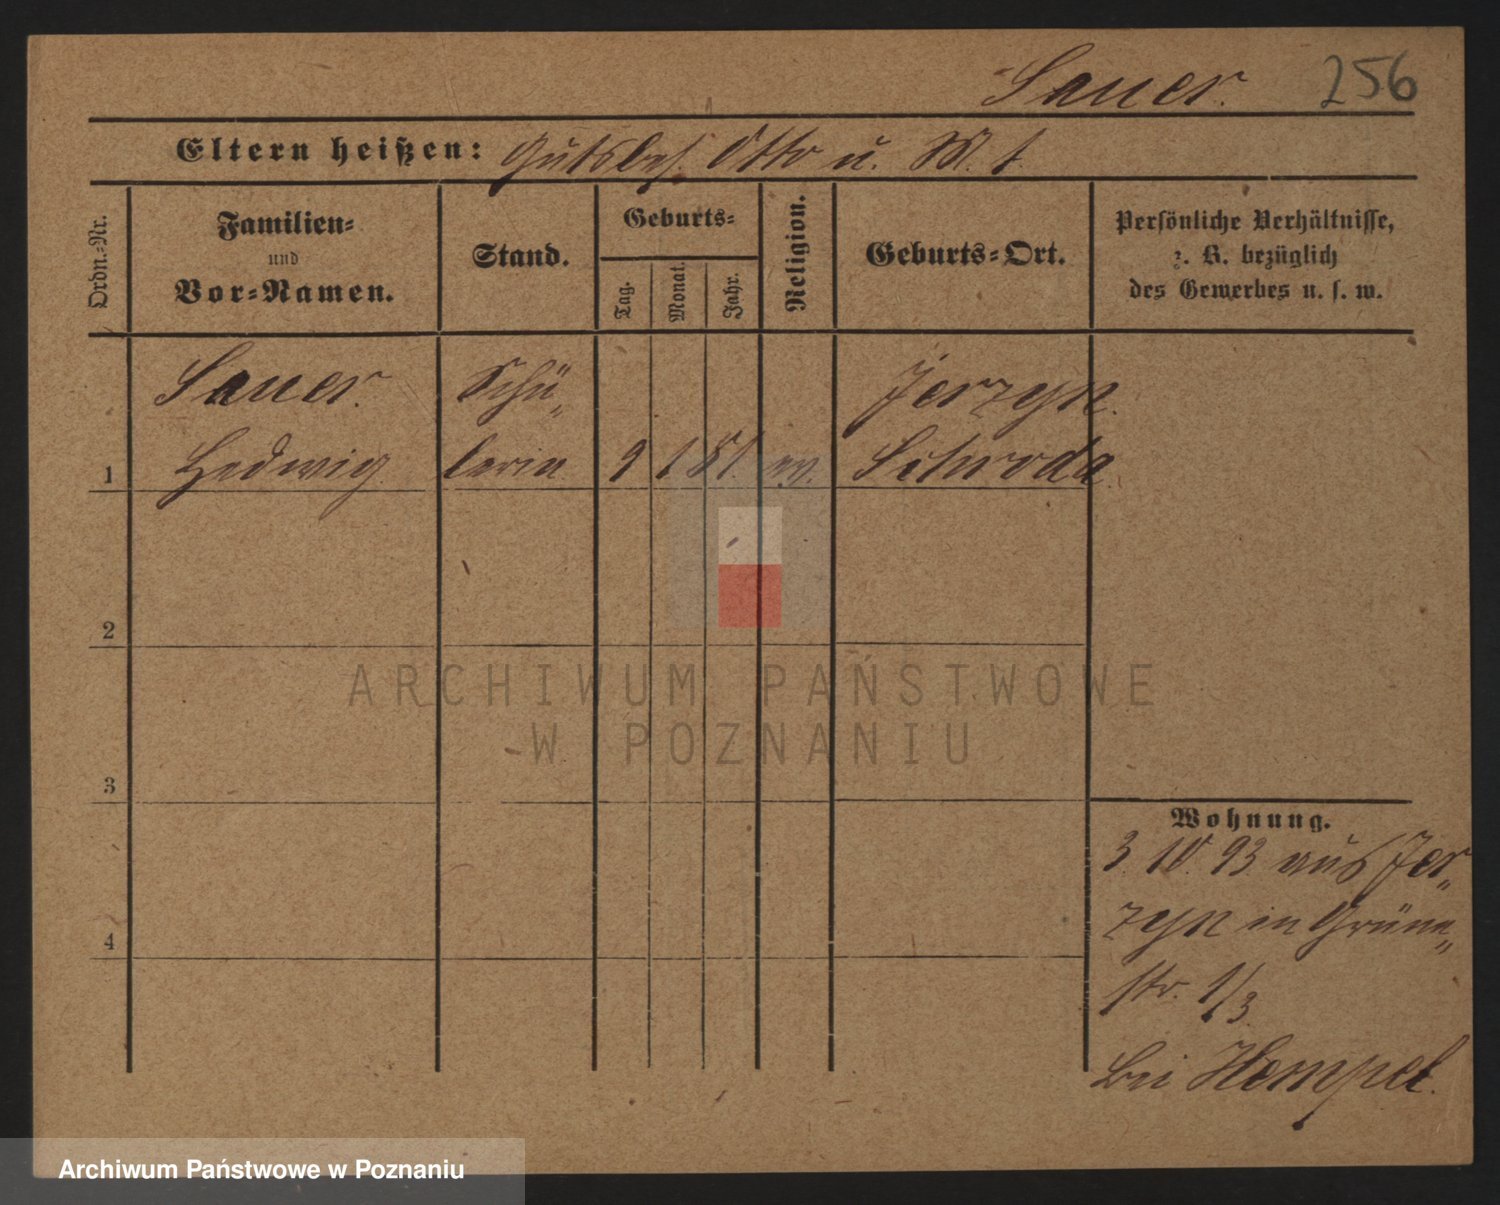 Sauer. 256
Eltern heißen: Gutsbes. Otto u. M. †
Ordn.=Nr.
Familien=
und
Vor=Namen.
Stand.
Geburts=
Tag.
Monat.
Jahr.
Religion.
Geburts=Ort.
Persönliche Verhältnisse,
z. B. bezüglich
des Gewerbes u. s. w.
Sauer. Schü„ Jerzyn.
1 Hedwig lerin 9 1 81. ev. Schroda
2
3
4
Wohnung.
3. 10. 93 aus Jer„
zyn in Grüne„
str. 1/3.
bei Hempel.
ARCHIWUM PAŃSTWOWE
W POZNANIU
Archiwum Państwowe w Poznaniu